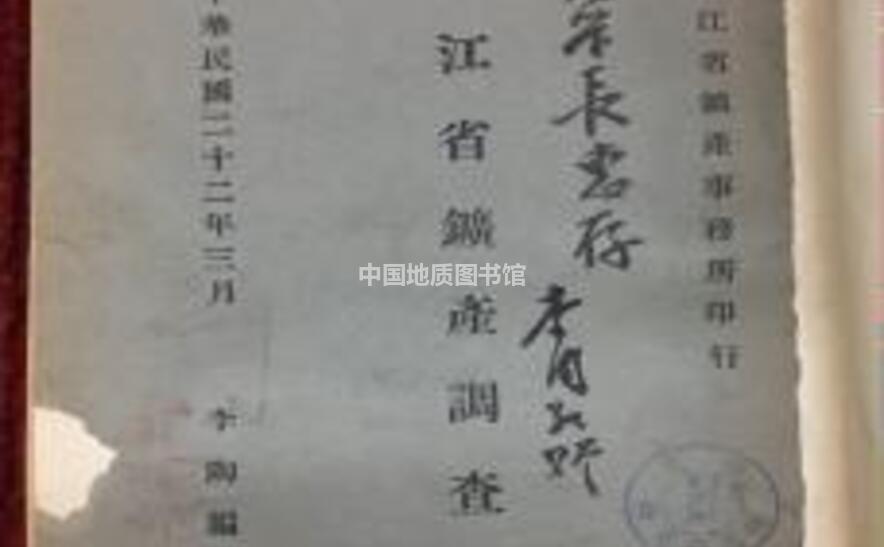 江省鑛產事務所印行
長惠存
李
江省鑛產調查
華民國二十二年三月
李陶編
中国地质图书馆